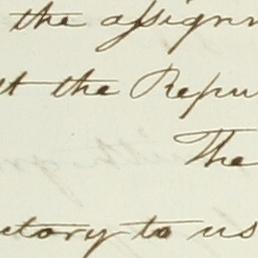 the assignm
st the Repu
The
ctory to us